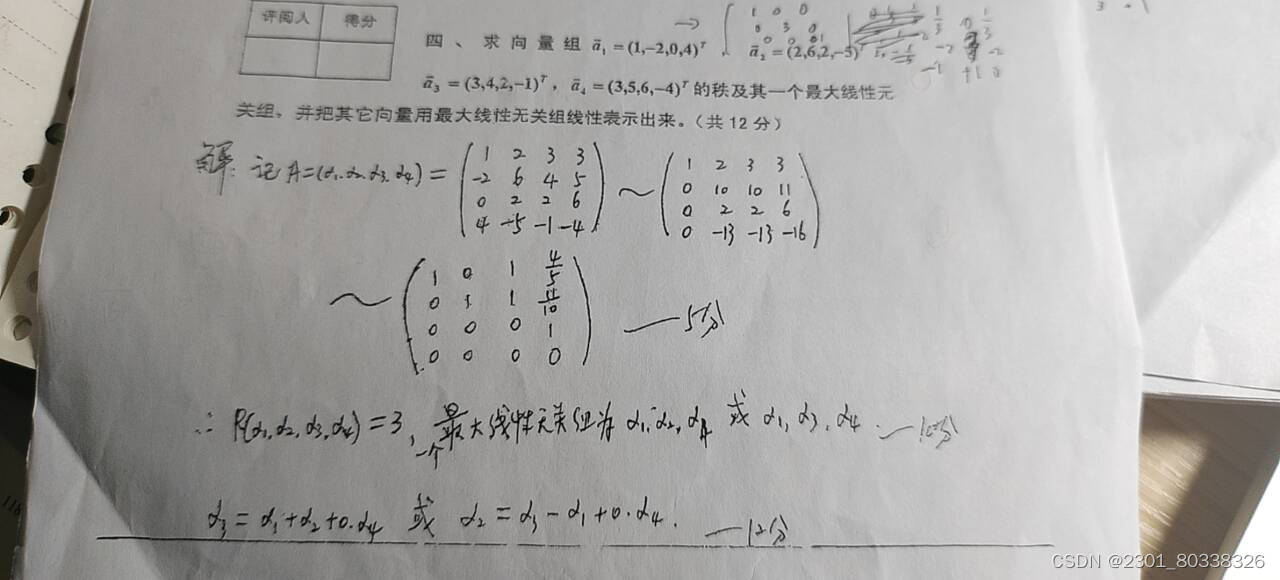 评阅人 得分
四、求向量组 ā₁ = (1,-2,0,4)ᵀ ā₂ = (2,6,2,-5)ᵀ
ā₃ = (3,4,2,-1)ᵀ，ā₄ = (3,5,6,-4)ᵀ 的秩及其一个最大线性无
关组，并把其它向量用最大线性无关组线性表示出来。（共12分）
解: 记A=(α₁,α₂,α₃,α₄) =
1 2 3 3
-2 6 4 5
0 2 2 6
4 -5 -1 -4
~
1 2 3 3
0 10 10 11
0 2 2 6
0 -13 -13 -16
~
1 0 1 4/5
0 1 1 11/10
0 0 0 1
0 0 0 0
—5分
∴ R(α₁,α₂,α₃,α₄) = 3, 一个最大线性无关组为 α₁,α₂,α₄ 或 α₁,α₃,α₄. —10分
α₃ = α₁+α₂+0·α₄ 或 α₂ = α₃-α₁+0·α₄. —12分
CSDN @2301_80338326